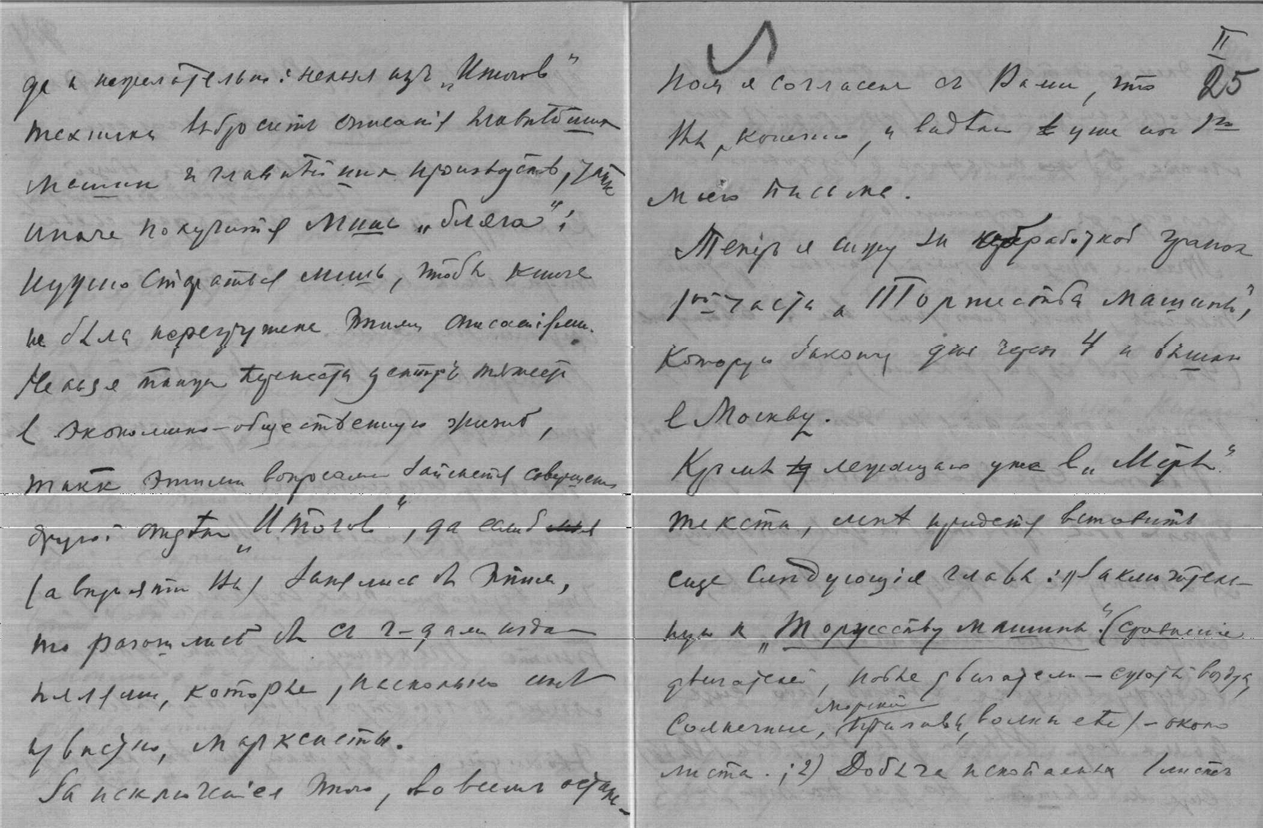 да и нежелательно: нельзя изъ „Итоговъ"
техники выбросить описанія главнѣйшихъ
машинъ и главнѣйшихъ производствъ,
иначе получится лишь „бляга";
нужно стараться лишь, чтобы книга
не была перегружена этими описаніями.
Нельзя также центръ тяжести
в экономико-общественную жизнь,
такъ этими вопросами займется совершенно
другой отдѣлъ „Итоговъ", да еслиб
(а вѣроятно Вы) занялись бы этимъ,
то разошлись бы съ г-дами изда-
телями, которые, насколько мнѣ
извѣстно, марксисты.
За исключеніемъ этого, во всемъ осталь-
II
25
номъ я согласенъ съ Вами, что
Вы, конечно, и видѣли уже изъ 1го
моего письма.
Теперь я сижу за обработкой гранокъ
1ой части „Торжества машины",
которую закончу дня через 4 и вышлю
в Москву.
Кромѣ лежащаго уже в „Мірѣ"
текста, мнѣ придется вставить
еще слѣдующія главы: 1) Заключитель-
ную к „Торжеству машины" (сравненіе
двигателей, новые двигатели – сухой воздухъ,
морскіе
солнечные, приливы, волны etc) – около
листа; 2) Добыча ископаемыхъ (листъ